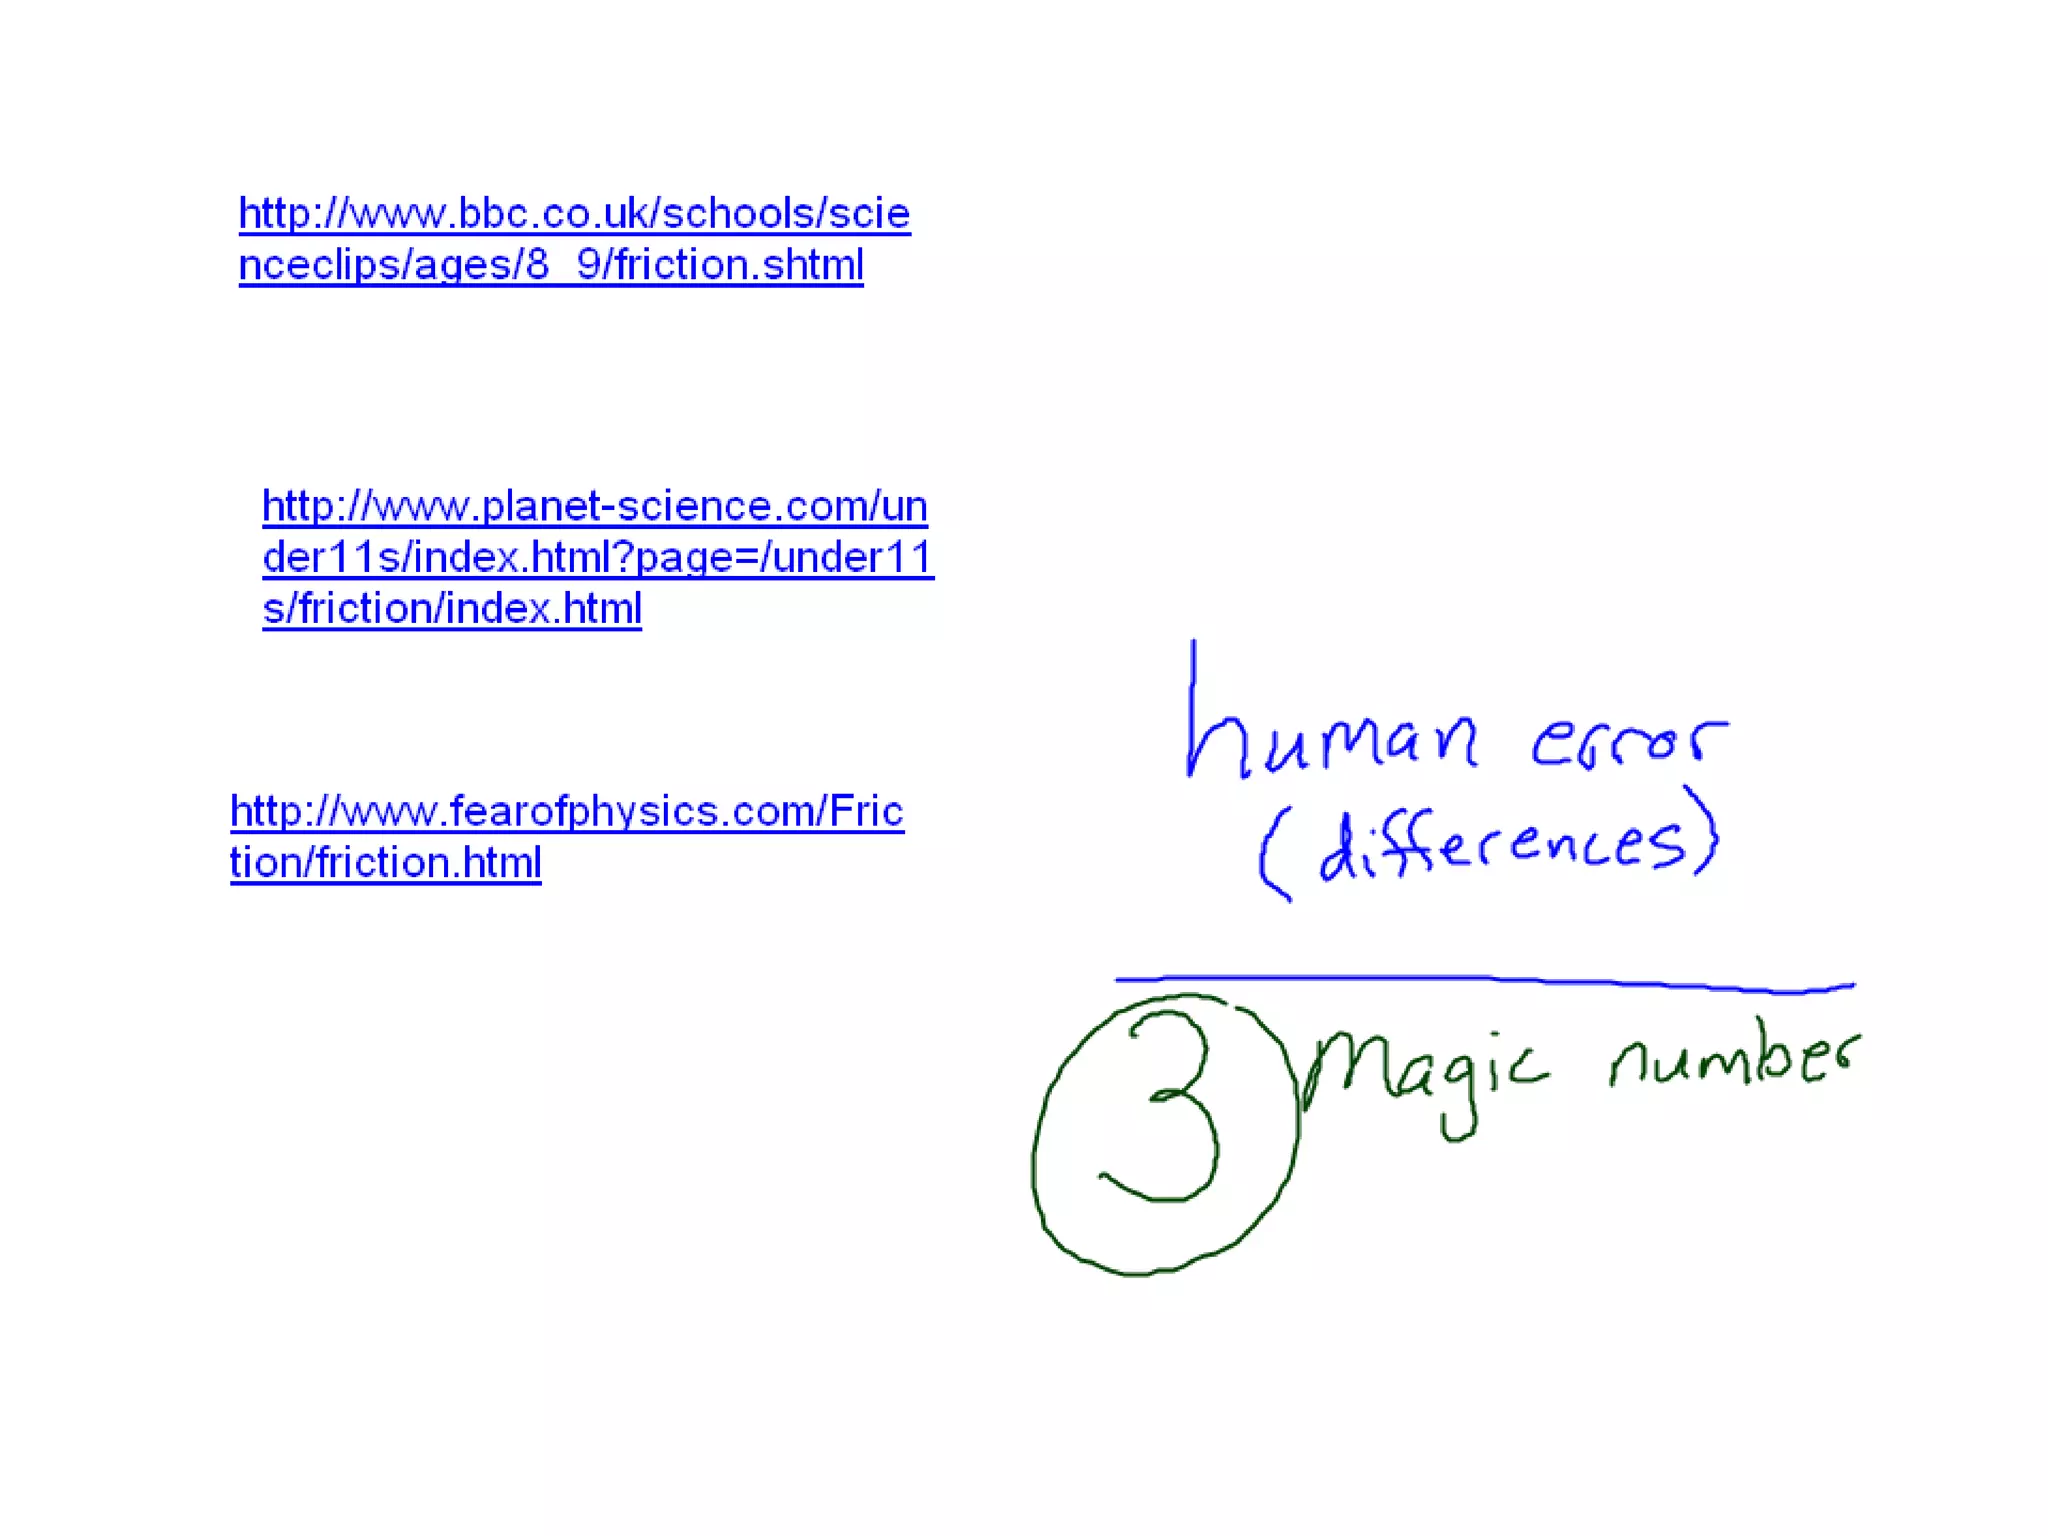 http://www.bbc.co.uk/schools/scie
nceclips/ages/8_9/friction.shtml
http://www.planet-science.com/un
der11s/index.html?page=/under11
s/friction/index.html
http://www.fearofphysics.com/Fric
tion/friction.html
human error
(differences)
3 Magic number